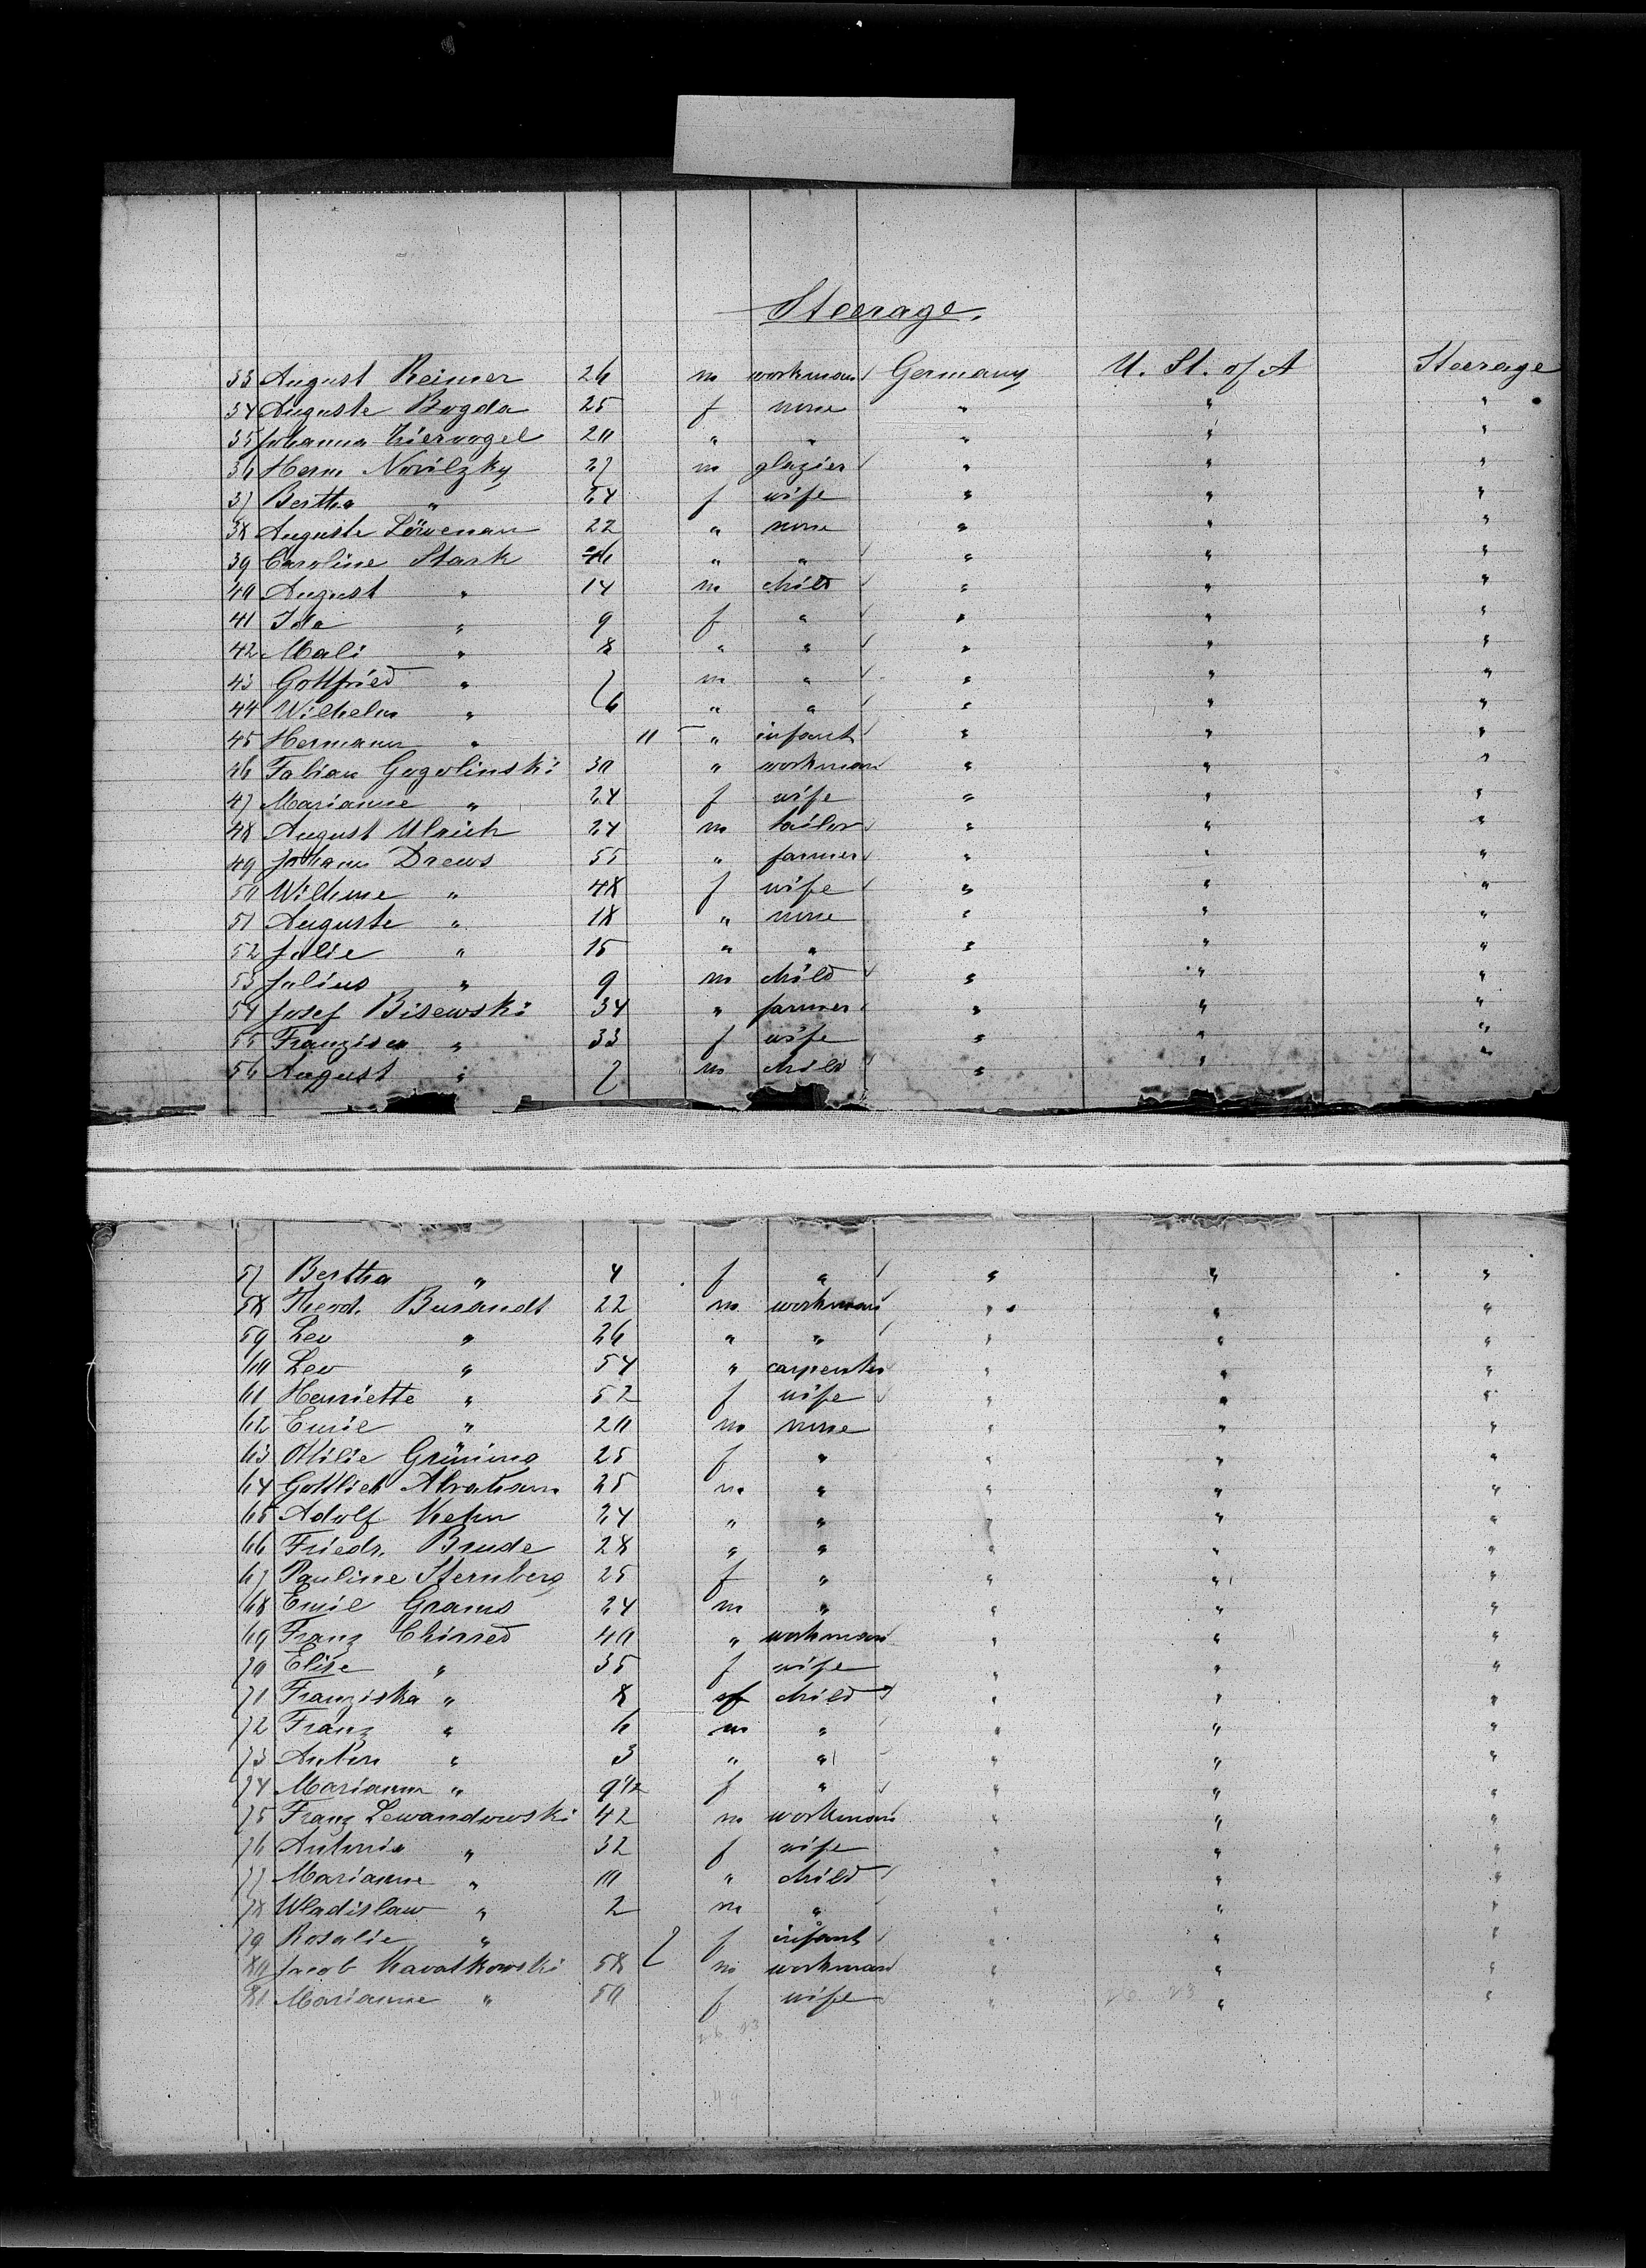 Steerage.
33 August Reimer 26 m workman Germany U. St. of A Steerage
34 Auguste Bogda 25 f none " " "
35 Johanna Ziervogel 20 " " " " "
36 Herm Novilzky 27 m glazier " " "
37 Bertha " 24 f wife " " "
38 Auguste Löwenau 22 " none " " "
39 Caroline Stark " " " " "
40 August " 14 m child " " "
41 Ida " 9 f " " " "
42 Mali " 8 " " " " "
43 Gottfried " 7 m " " " "
44 Wilhelm " 6 " " " " "
45 Hermann " 11 " infant " " "
46 Fabian Gogolinski 30 " workman " " "
47 Marianne " 24 f wife " " "
48 August Ulrich 24 m tailor " " "
49 Johann Drews 55 " farmer " " "
50 Wilhme " 48 f wife " " "
51 Auguste " 18 " none " " "
52 Julie " 15 " " " " "
53 Julius " 9 m child " " "
54 Josef Bisewski 34 " farmer " " "
55 Franzisca " 33 f wife " " "
56 August " 7 m child " " "
57 Bertha " 4 f " " " "
58 Theod. Burandt 22 m workman " " "
59 Leo " 26 " " " " "
60 Leo " 54 " carpenter " " "
61 Henriette " 52 f wife " " "
62 Emil " 20 m none " " "
63 Ottilie Grüning 25 f " " " "
64 Gottlieb Abraham 25 m " " " "
65 Adolf Kehn 24 " " " " "
66 Friedr. Brude 28 " " " " "
67 Pauline Sternberg 25 f " " " "
68 Emil Grams 24 m " " " "
69 Franz Chirred 40 " workman " " "
70 Elise " 35 f wife " " "
71 Franziska " 8 f child " " "
72 Franz " 6 m " " " "
73 Anton " 3 " " " " "
74 Mariann " 9 1/2 f " " " "
75 Franz Lewandowski 42 m workman " " "
76 Antonia " 32 f wife " " "
77 Marianne " 10 " child " " "
78 Wladislaw " 2 m " " " "
79 Rosalie " 7 f infant " " "
80 Jacob Kavatkowski 58 m workman " " "
81 Marianne " 50 f wife " " "
26 23